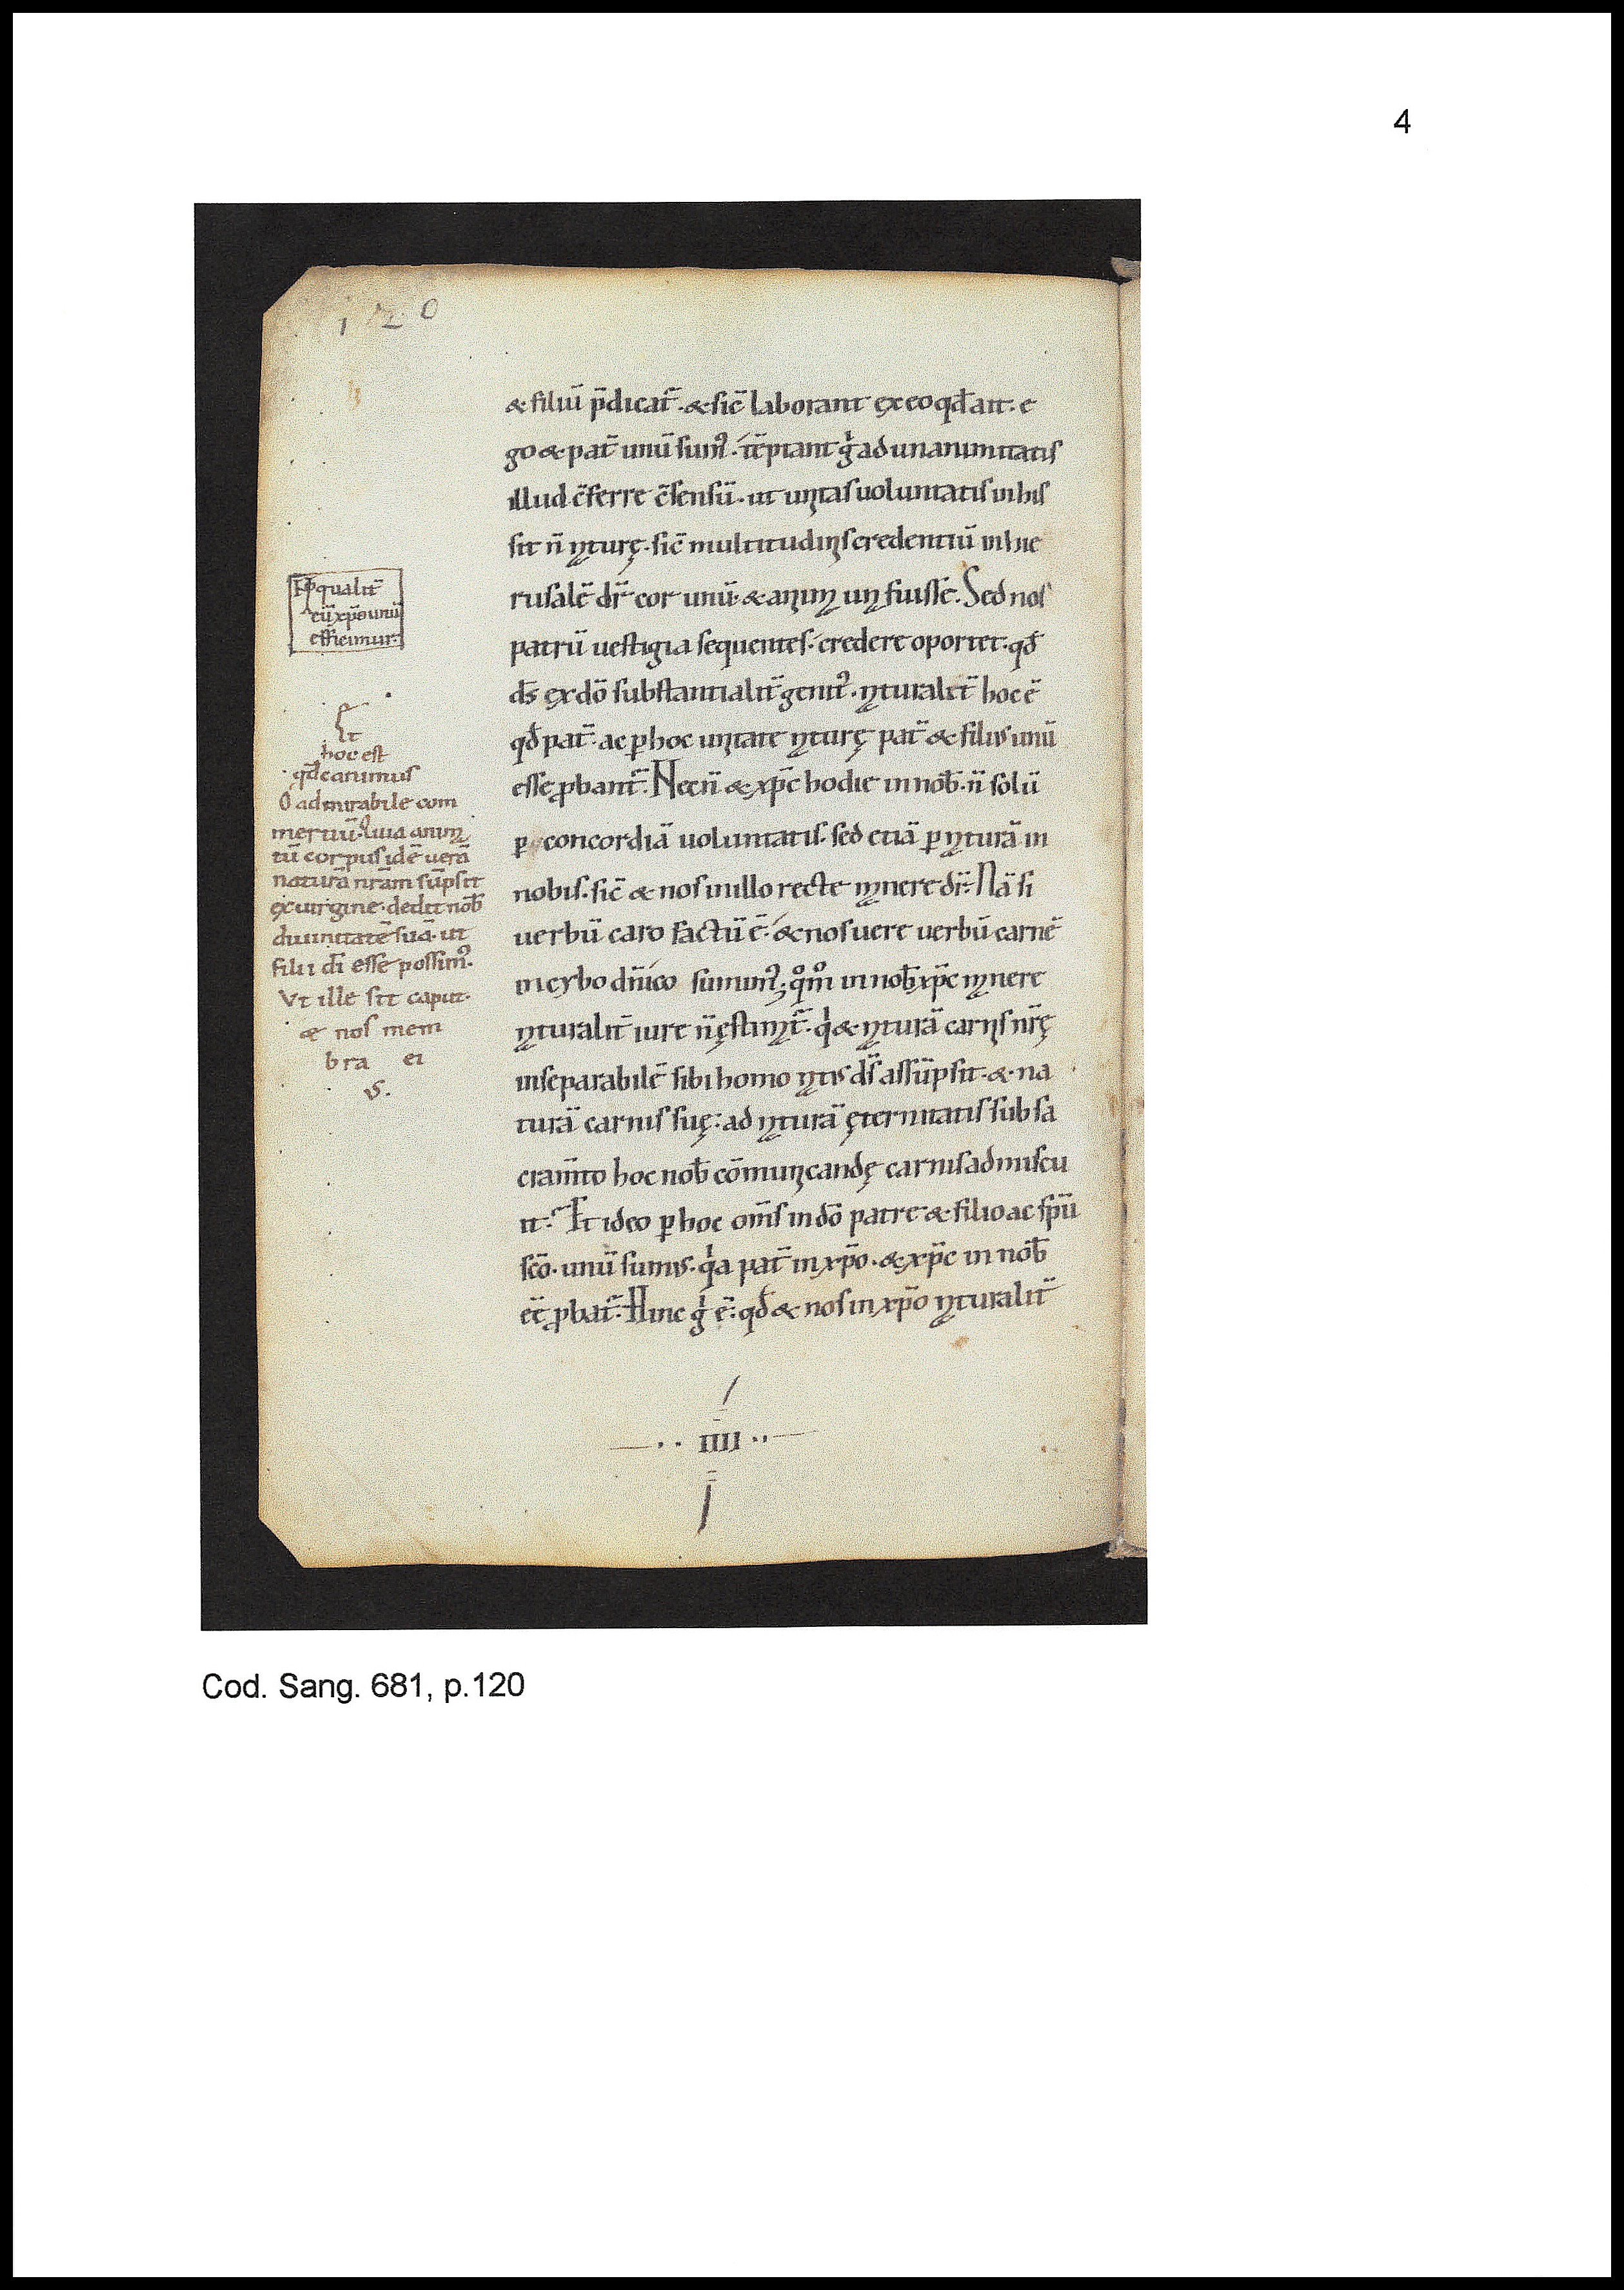 4
120
& filiū p̄dicat᷑. & sic̄ laborant ęx eo qđ ait. e
go & pat̄ unū sum᷒. tēptant gͥ ad unanimitatis
illud c̄ferre c̄sensū. ut unitas uoluntatis in his
sit n̄ naturę. sic̄ multitudinis credentiū in hie
rusalē dr̄ cor unū. & anima una fuisse. Sed nos
patrū uestigia sequentes. credere oportet. qđ
ds̄ ęx dō substantialit̄ genit᷒. naturalit̄ hoc ē
qđ pat̄. ac ꝑ hoc unitate naturę pat̄ & filius unū
esse ꝓbant᷑. Nec n̄ & xp̄c hodie in nob̄. n̄ solū
ꝑ concordiā uoluntatis. sed etiā ꝑ naturā in
nobis. sic̄ & nos in illo recte manere dr̄. Nā si
uerbū caro factū ē. & nos uere uerbū carnē
in cybo dn̄ico sumim᷒. qͦmͦ in nob̄ xp̄c manere
naturalit̄ iure n̄ ęstimat᷑. qͥ & naturā carnis nr̄ę
inseparabilē sibi homo natus ds̄ assūpsit. & na
turā carnis suę. ad naturā ęternitatis sub sa
cram̄to hoc nob̄ cōmunicandę carnis admiscu
it. Et ideo ꝑ hoc om̄s in dō patre & filio ac sp̄u
sc̄o. unū sumus. qͥa pat̄ in xp̄o. & xp̄c in nob̄
ēē ꝓbat᷑. Hinc gͥ ē. qđ & nos in xp̄o naturalit̄
qualit̄
cū xp̄o unū
efficimur.
hoc est
qđ canimus
O admirabile com
mertiū. quia anima
tū corpus idē uerā
naturā nr̄am sūpsit
ęx uirgine. dedit nob̄
diuinitatē suā. ut
filii dī esse possim᷒.
Vt ille sit caput.
& nos mem
bra ei
us.
IIII
Cod. Sang. 681, p.120